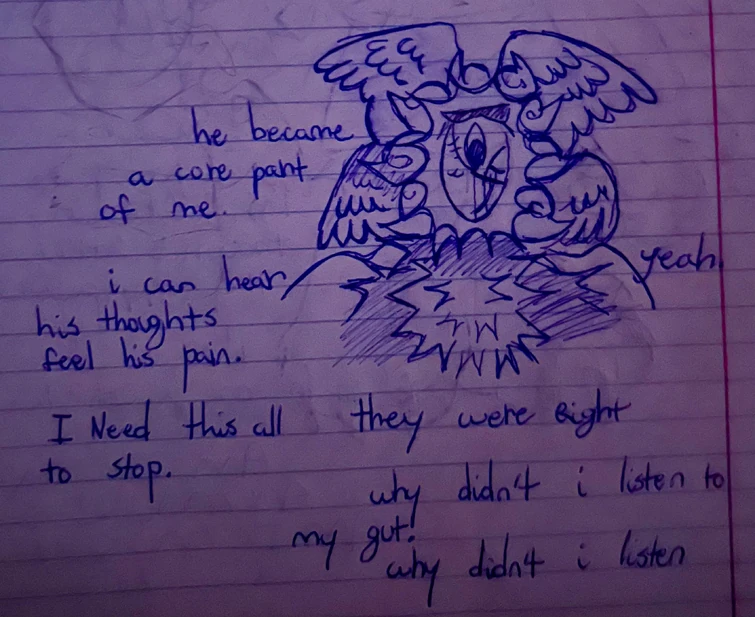 he became
a core part
of me.
i can hear
his thoughts
feel his pain.
yeah
I Need this all
to stop.
they were right
why didn't i listen to
my gut!
why didn't i listen